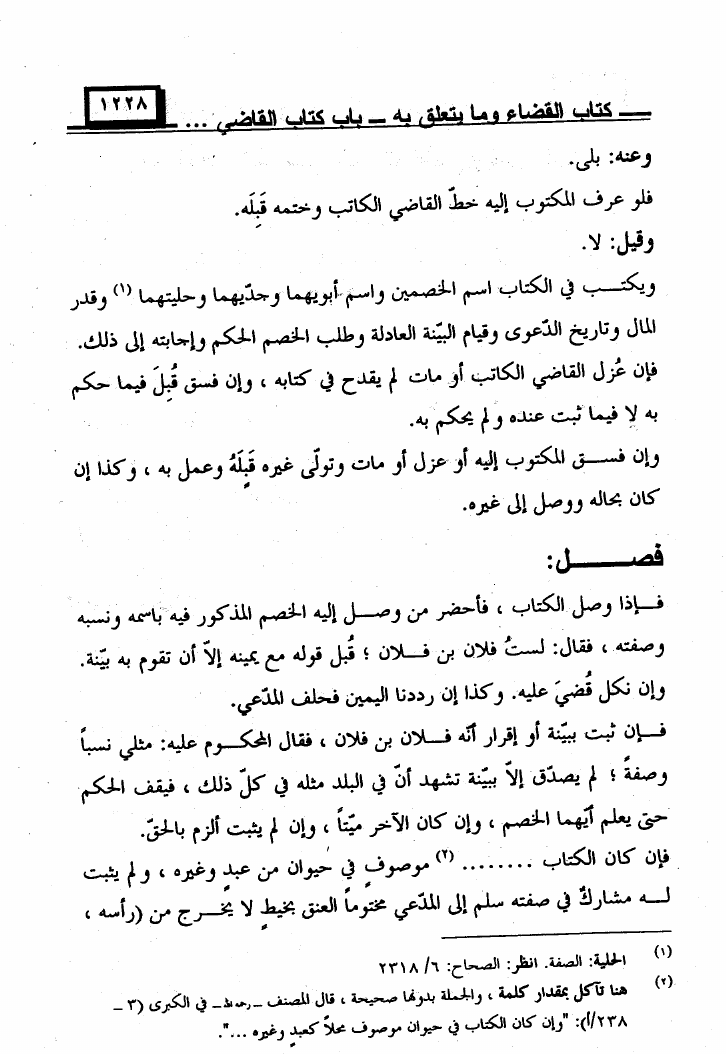 كتاب القضاء وما يتعلق به – باب كتاب القاضي ... ١٢٢٨
وعنه: بلى.
فلو عرف المكتوب إليه خطّ القاضي الكاتب وختمه قَبِلَه.
وقيل: لا.
ويكتب في الكتاب اسم الخصمين واسم أبويهما وجدّيهما وحليتهما (١) وقدر
المال وتاريخ الدّعوى وقيام البيّنة العادلة وطلب الخصم الحكم وإجابته إلى ذلك.
فإن عُزل القاضي الكاتب أو مات لم يقدح في كتابه ، وإن فسق قُبِلَ فيما حكم
به لا فيما ثبت عنده ولم يحكم به.
وإن فسق المكتوب إليه أو عزل أو مات وتولّى غيره قَبِلَهُ وعمل به ، وكذا إن
كان بحاله ووصل إلى غيره.
فصل:
فإذا وصل الكتاب ، فأحضر من وصل إليه الخصم المذكور فيه باسمه ونسبه
وصفته ، فقال: لستُ فلان بن فلان ؛ قُبل قوله مع يمينه إلاّ أن تقوم به بيّنة.
وإن نكل قُضيَ عليه. وكذا إن رددنا اليمين فحلف المدّعي.
فإن ثبت ببيّنة أو إقرار أنّه فلان بن فلان ، فقال المحكوم عليه: مثلي نسباً
وصفةً ؛ لم يصدّق إلاّ ببيّنة تشهد أنّ في البلد مثله في كلّ ذلك ، فيقف الحكم
حتى يعلم أيّهما الخصم ، وإن كان الآخر ميّتاً ، وإن لم يثبت ألزم بالحقّ.
فإن كان الكتاب ........ (٢) موصوفٍ في حيوان من عبدٍ وغيره ، ولم يثبت
له مشاركٌ في صفته سلم إلى المدّعي مختوماً العنق بخيطٍ لا يخرج من (رأسه ،
(١) الحلية: الصفة. انظر: الصحاح: ٦/ ٢٣١٨
(٢) هنا تآكل بمقدار كلمة ، والجملة بدونها صحيحة ، قال المصنف –رحمه الله– في الكبرى (٣ –
٢٣٨/أ): "وإن كان الكتاب في حيوان موصوف محلاً كعبدٍ وغيره ...".